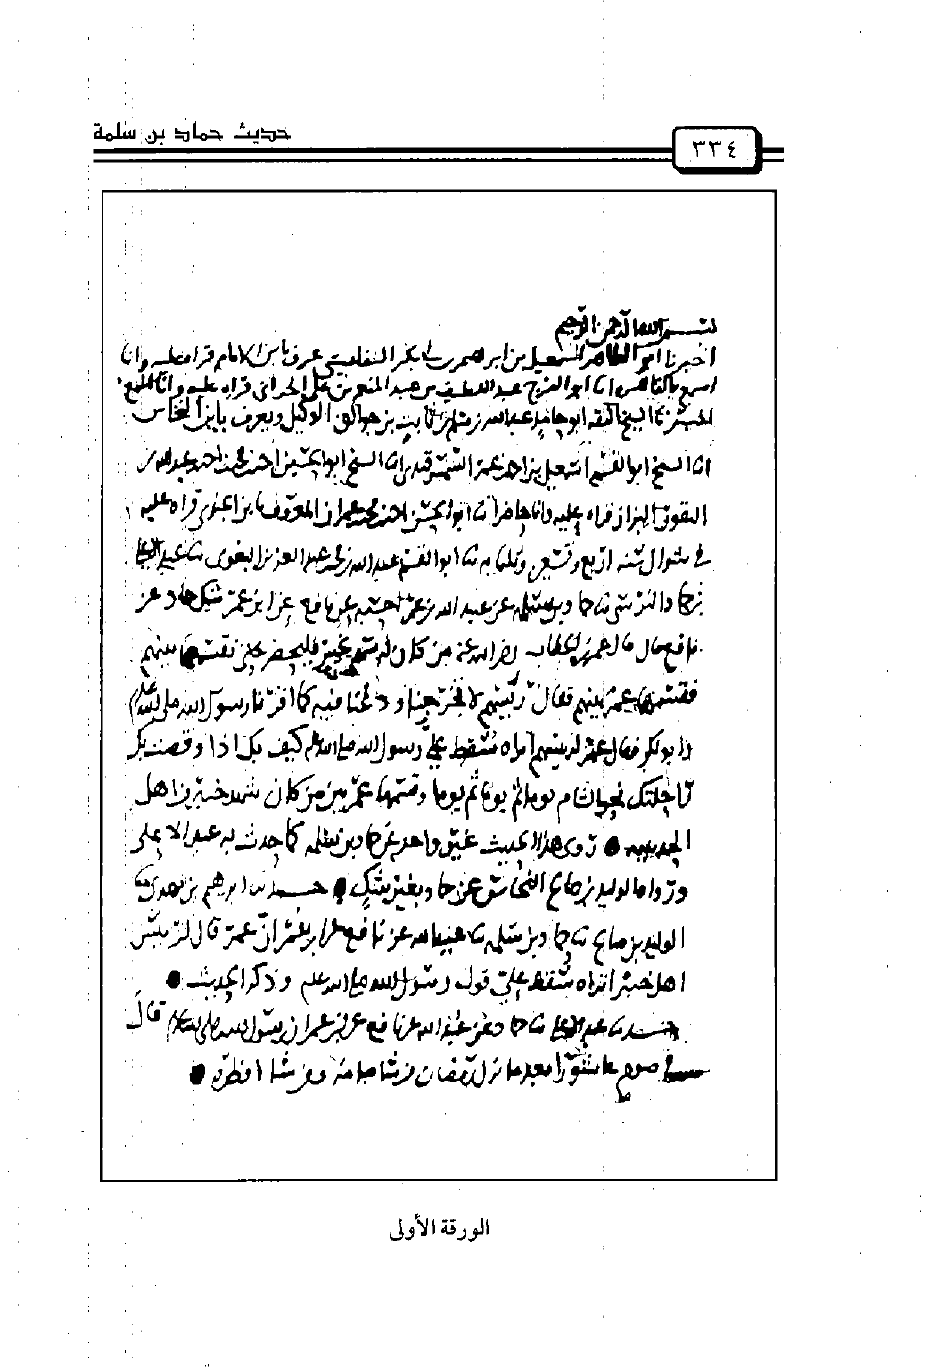 حديث حماد بن سلمة
٣٣٤
بسم الله الرحمن الرحيم
اخبرنا ابو الطاهر اسمعيل بن ابرهيم بن ابي بكر التفليسي عرف بابن الامام قراه عليه وانا
اسمع بالقاهره انا ابو الفرج عبد اللطيف بن عبد المنعم بن علي الحراني قراه عليه وانا اسمع
الشيخ الثقه ابو حامد عبد الله بن مسلم بن ثابت بن جوالق الوكيل ويعرف بابن النخاس
انا الشيخ ابو القسم اسمعيل بن احمد بن عمر السمرقندي انا الشيخ ابو الحسين احمد بن محمد بن احمد بن عبد الله بن
النقور البزاز قراه عليه وانا حاضر انا ابو الحسن احمد بن محمد بن عمران المعروف بابن الجندي قراه عليه
في شوال سنه اربع وتسعين وثلثمايه ثنا ابو القسم عبد الله بن محمد بن عبد العزيز البغوي ثنا عبد الاعلى
بن حماد النرسي ثنا حماد بن سلمه عن عبيد الله بن عمر احسبه عن نافع عن ابن عمر شك حماد عن
نافع قال قال عمر بن الخطاب رضي الله عنه من كان له سهم بخيبر فليحضر حتى نقسمها بينهم
فقسمها عمر بينهم فقال رئيسهم لا تخرجنا ودعنا فيه كما اقرنا رسول الله صلى الله عليه
وابو بكر فقال عمر لرئيسهم اتراه سقط علي قول رسول الله صلى الله عليه وسلم كيف بك اذا وقصت بك
راحلتك نحو الشام يوما ثم يوما ثم يوما وقسمها عمر بين من كان شهد خيبر من اهل
الحديبيه ● روى هذا الحديث غير واحد عن حماد بن سلمه كما حدث به عبد الاعلى
ورواه الوليد بن صالح النخاس عن حماد بغير شك ● حدثناه ابرهيم بن هاني ثنا
الوليد بن صالح ثنا حماد بن سلمه ثنا عبيد الله عن نافع عن ابن عمر ان عمر قال لرئيس
اهل خيبر اتراه سقط علي قول رسول الله صلى الله عليه وسلم وذكر الحديث ●
حدثنا عبد الاعلى ثنا حماد عن عبيد الله عن نافع عن ابن عمر ان رسول الله صلى الله عليه وسلم قال
في صوم عاشورا بعد ما نزل رمضان من شا صامه ومن شا افطره ●
الورقة الأولى